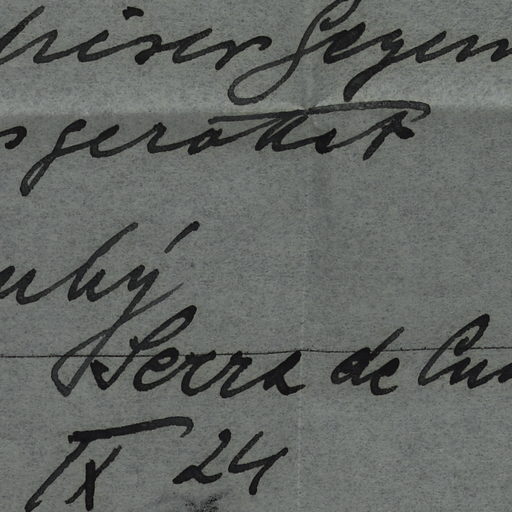 dieser Gegen
sgerottet
uhý
Serra de Cu
IX 24